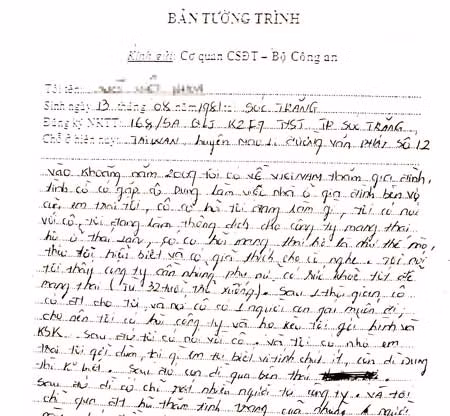 BẢN TƯỜNG TRÌNH
Kính gửi: Cơ quan CSĐT – Bộ Công an
Tôi tên:
Sinh ngày 13 tháng 08 năm 1981: SÓC TRĂNG
Đăng ký NKTT: 168/5A K2 F9 TP SÓC TRĂNG
Chỗ ở hiện nay: TAIWAN, huyện đường vạn PHÁT SỐ 12
vào khoảng năm 2009 tôi có về VIETNAM thăm gia đình,
tình cờ có gặp cô Dung làm việc nhà ở gia đình bên vợ
của em trai tôi, cô có hỏi tôi đang làm gì, tôi có nói
với cô, tôi đang làm thông dịch cho công ty mang thai
hộ ở thái Lan, cô có hỏi mang thai hộ là như thế nào,
thì tôi hiểu biết và có giải thích cho cô nghe. Tôi nói
tôi thấy công ty cần những phụ nữ có sức khỏe tốt để
mang thai (từ 32 tuổi trở xuống). Sau 1 thời gian cô
có ĐT cho tôi và nói cô có 1 người con gái muốn đi,
cho nên tôi có hỏi công ty và họ kêu tôi gởi hình và
KSK. Sau đó tôi có nói với cô. và tôi có nhờ em
trai tôi gởi dùm, tại vì em tôi biết vi tính chút ít, còn dì Dung
thì K biết. Sau đó con dì qua bên thai
Sau đó dì có chỉ rất nhiều người tới công ty. và tôi
chỉ qua ĐT hỏi thăm tình trạng của những người